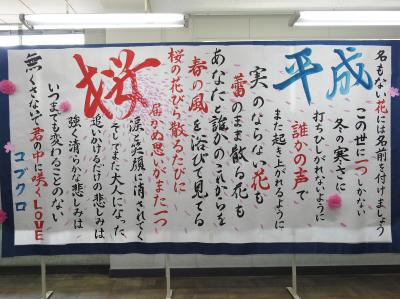 平成
名もない花には名前を付けましょう
この世に一つしかない
冬の寒さに
打ちひしがれないように
誰かの声で
また起き上がれるように
実のならない花も
蕾のまま散る花も
あなたと誰かのこれからを
春の風を浴びて見てる
桜の花びら散るたびに
届かぬ思いがまた一つ
桜
涙と笑顔に消されてく
そしてまた大人になった
追いかけるだけの悲しみは
強く清らかな悲しみは
いつまでも変わることのない
無くさないで君の中に咲くLOVE
コブクロ